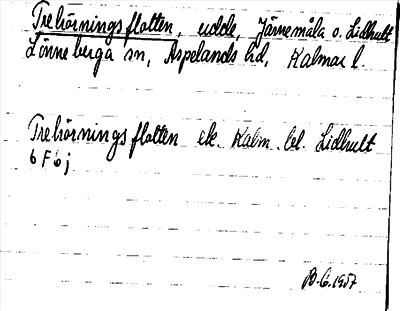 Trehörningsflatten, udde, Järnemåla o. Lidhult
Lönneberga sn, Aspelands hd, Kalmar l.
Trehörningsflatten ek. Kalm. bl. Lidhult
6 F 6 j
B-G. 1957